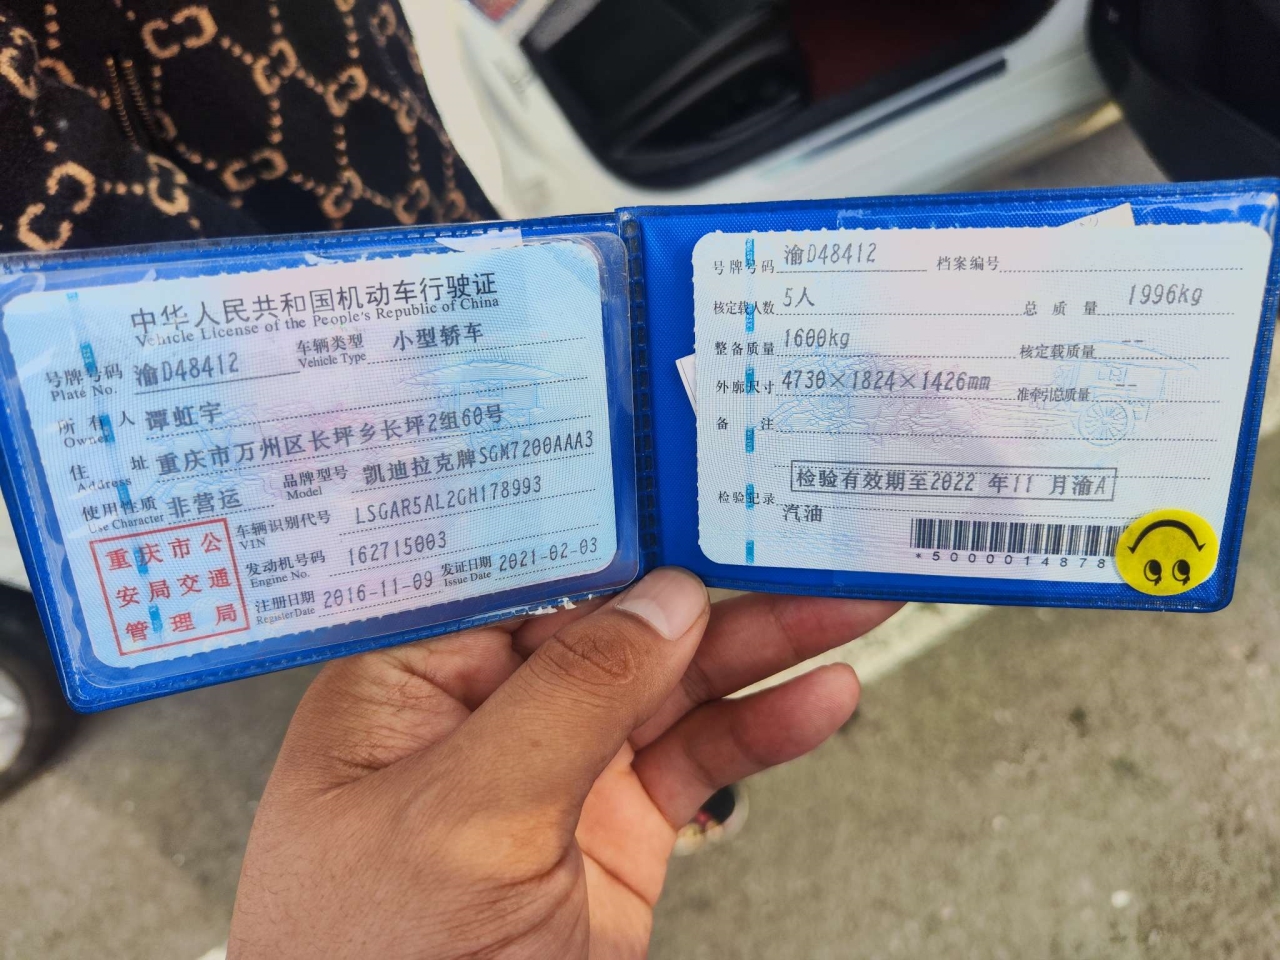 中华人民共和国机动车行驶证
Vehicle License of the People's Republic of China
号牌号码 渝D48412 车辆类型 小型轿车
Plate No. Vehicle Type
所有人 谭虹宇
Owner
住址 重庆市万州区长坪乡长坪2组60号
Address
使用性质 非营运 品牌型号 凯迪拉克牌SGM7200AAA3
Use Character Model
重庆市公安局交通管理局
车辆识别代号 LSGAR5AL2GH178993
VIN
发动机号码 162715003
Engine No.
注册日期 2016-11-09 发证日期 2021-02-03
Register Date Issue Date
号牌号码 渝D48412 档案编号
核定载人数 5人 总质量 1996kg
整备质量 1600kg 核定载质量 --
外廓尺寸 4730×1824×1426mm 准牵引总质量 --
备注
检验有效期至2022 年11 月渝A
检验记录
汽油
*5000014878